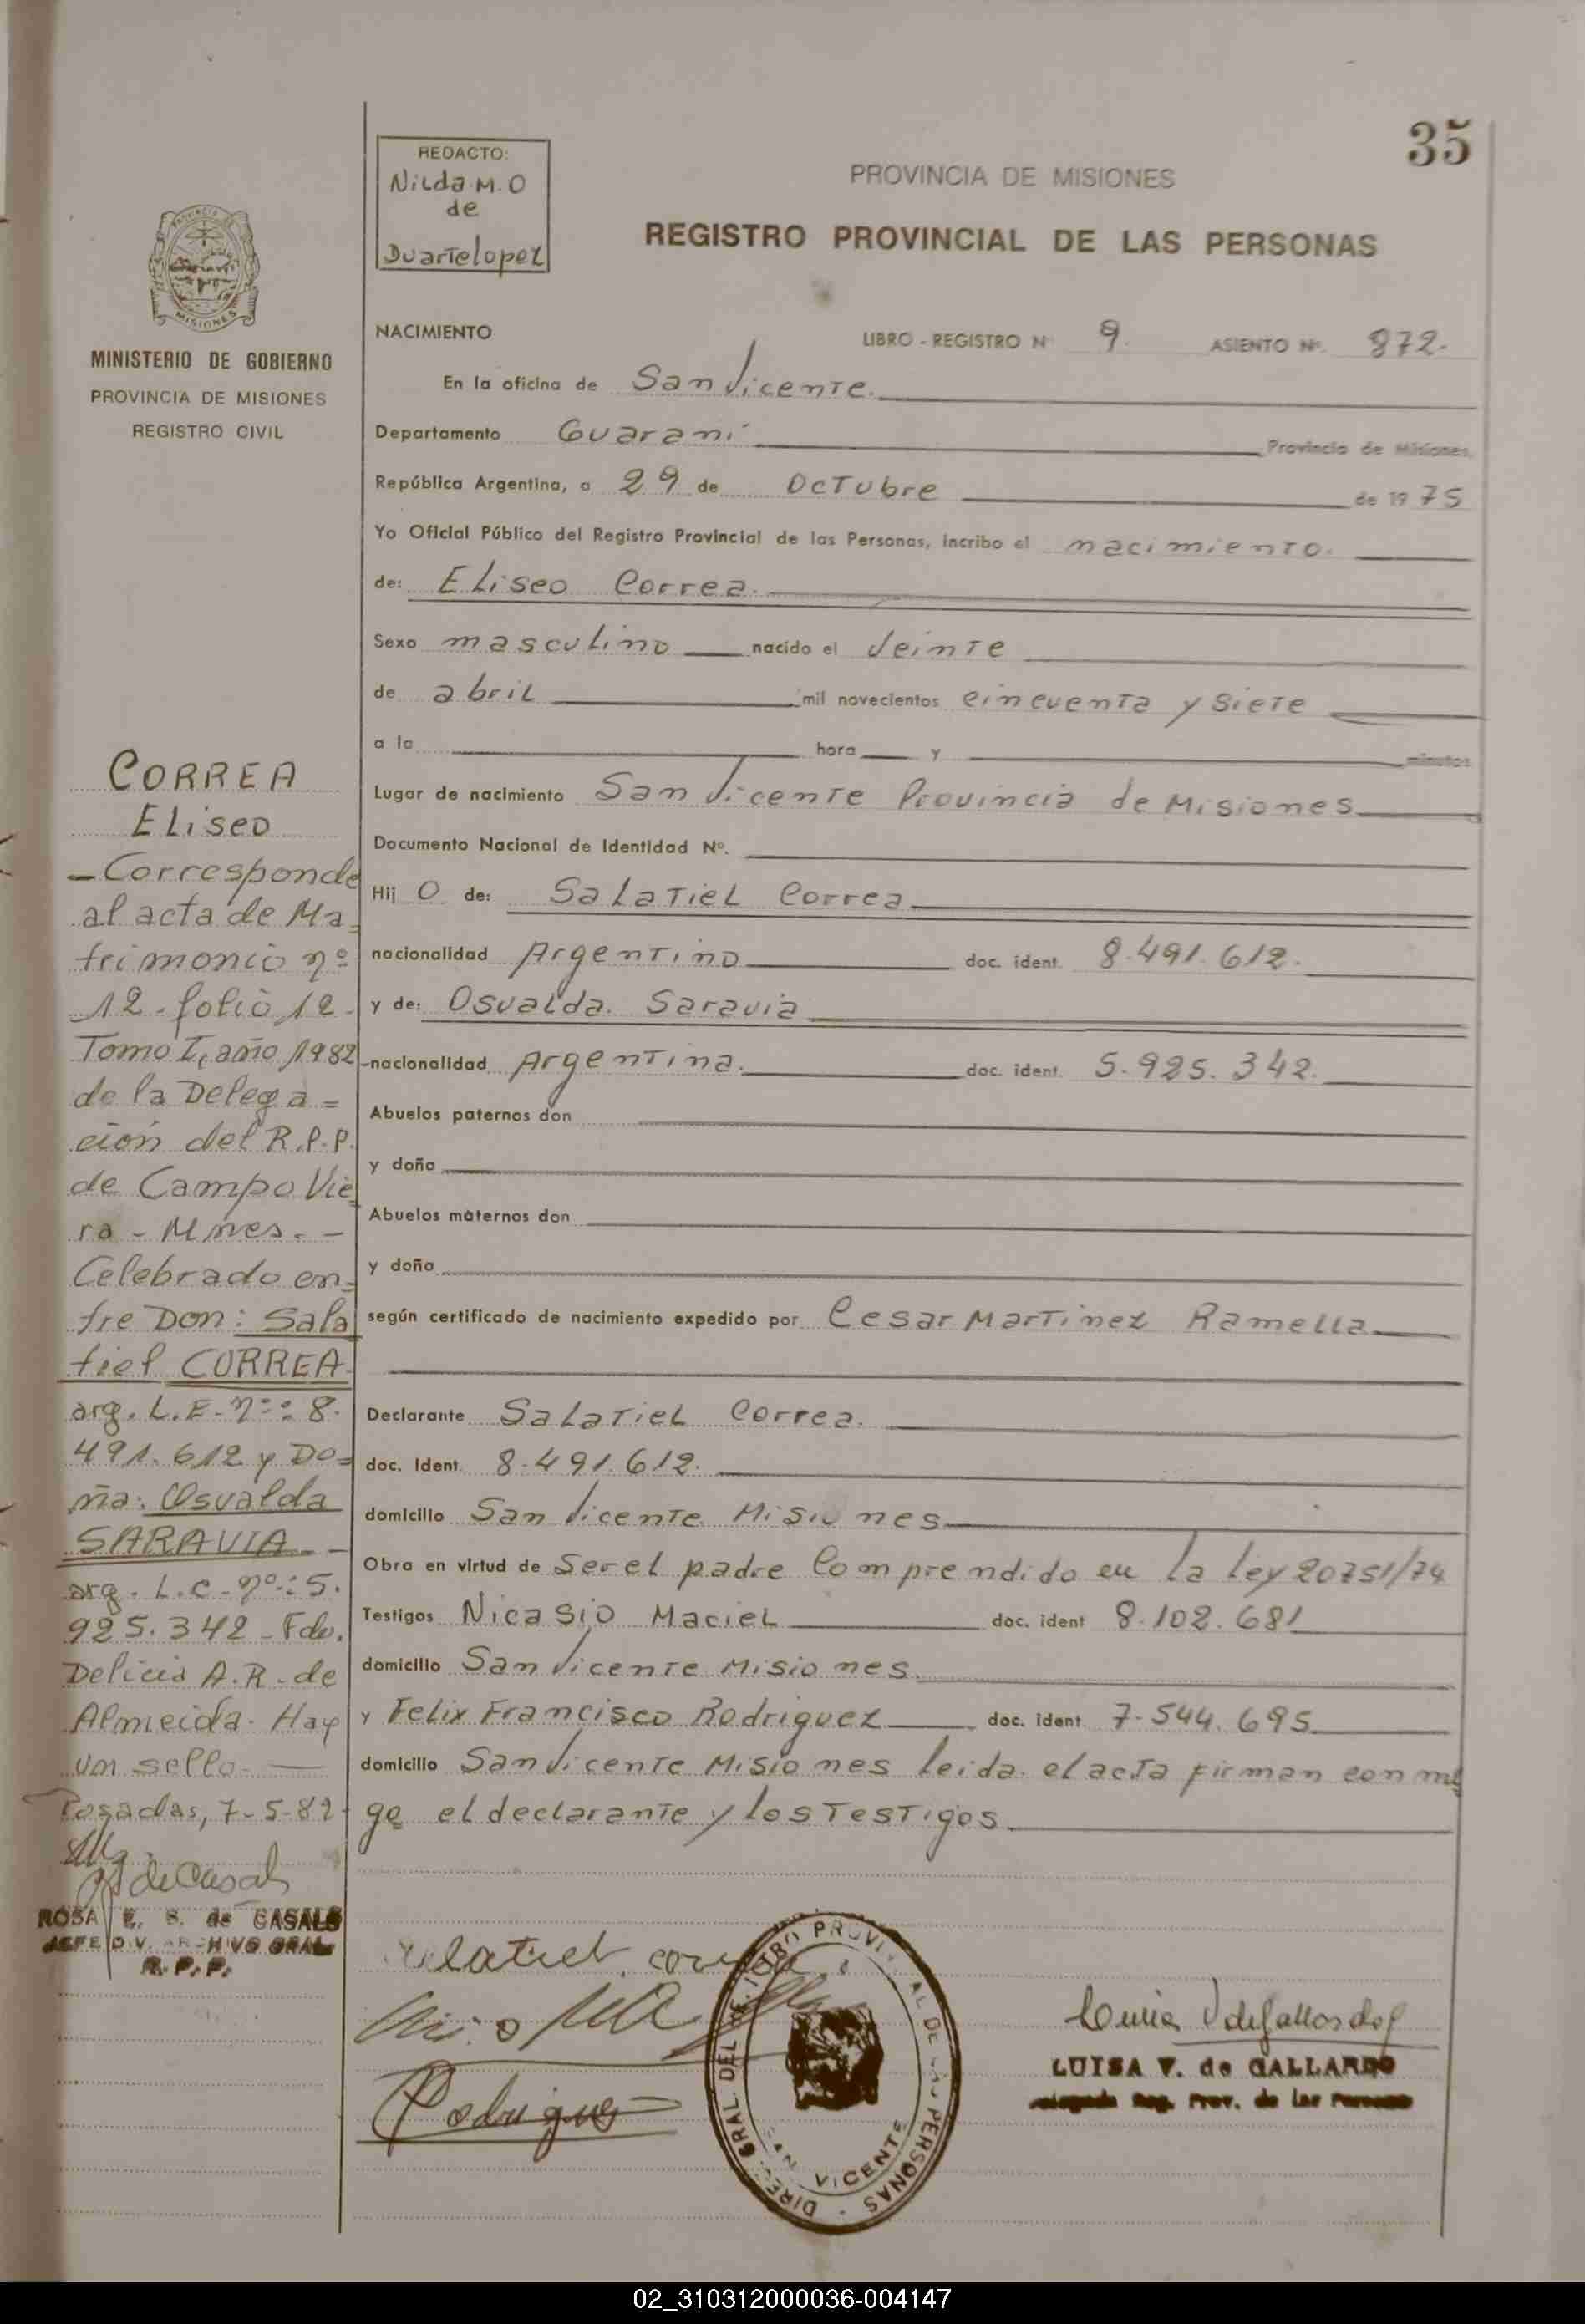 35
REDACTO:
Nilda M. O
de
Duartelopez
PROVINCIA DE MISIONES
REGISTRO PROVINCIAL DE LAS PERSONAS
MISIONES
MINISTERIO DE GOBIERNO
PROVINCIA DE MISIONES
REGISTRO CIVIL
NACIMIENTO LIBRO - REGISTRO Nº 9. ASIENTO Nº. 872.
En la oficina de San Vicente.
Departamento Guaraní Provincia de Misiones,
República Argentina, a 29 de Octubre de 1975
Yo Oficial Público del Registro Provincial de las Personas, incribo el nacimiento.
de: Eliseo Correa.
Sexo masculino nacido el Veinte
de abril mil novecientos cincuenta y Siete
a la hora y minutos
Lugar de nacimiento San Vicente Provincia de Misiones
Documento Nacional de Identidad Nº.
Hij O. de: Salatiel Correa
nacionalidad Argentino doc. ident. 8.491.612.
y de: Osvalda. Saravia
nacionalidad Argentina. doc. ident. 5.925.342.
Abuelos paternos don
y doña
Abuelos maternos don
y doña
según certificado de nacimiento expedido por Cesar Martinez Ramella
Declarante Salatiel Correa.
doc. Ident. 8.491.612.
domicilio San Vicente Misiones
Obra en virtud de Ser el padre Comprendido en la ley 20751/74
Testigos Nicasio Maciel doc. ident 8.102.681
domicilio San Vicente Misiones.
y Felix Francisco Rodriguez doc. ident. 7.544.695
domicilio San Vicente Misiones leida. el acta firman con mi
go el declarante y los Testigos.
CORREA
Eliseo
- Corresponde
al acta de Ma=
trimonio nº
12. folio 12.
Tomo I, año 1982
de la Delega=
ción del R.P.P.
de Campo Vie
ra - Mnes. -
Celebrado en=
tre Don: Sala
tiel CORREA.
arg. L.E. nº: 8.
491.612 y Do=
ña: Osvalda
SARAVIA. -
arg. L.C. nº: 5.
925.342 - Fdo.
Delicia A.R. de
Almeida. Hay
un sello. —
Posadas, 7-5-82
de Casals
ROSA E. S. de CASALS
JEFE DIV. ARCHIVO GRAL.
R. P. P.
Salatiel. correa
Rodriguez
DIREC. GRAL. DEL REGISTRO PROVINCIAL DE LAS PERSONAS
SAN VICENTE
Luisa V de Gallardo
LUISA V. de GALLARDO
Delegada Reg. Prov. de las Personas
02_310312000036-004147